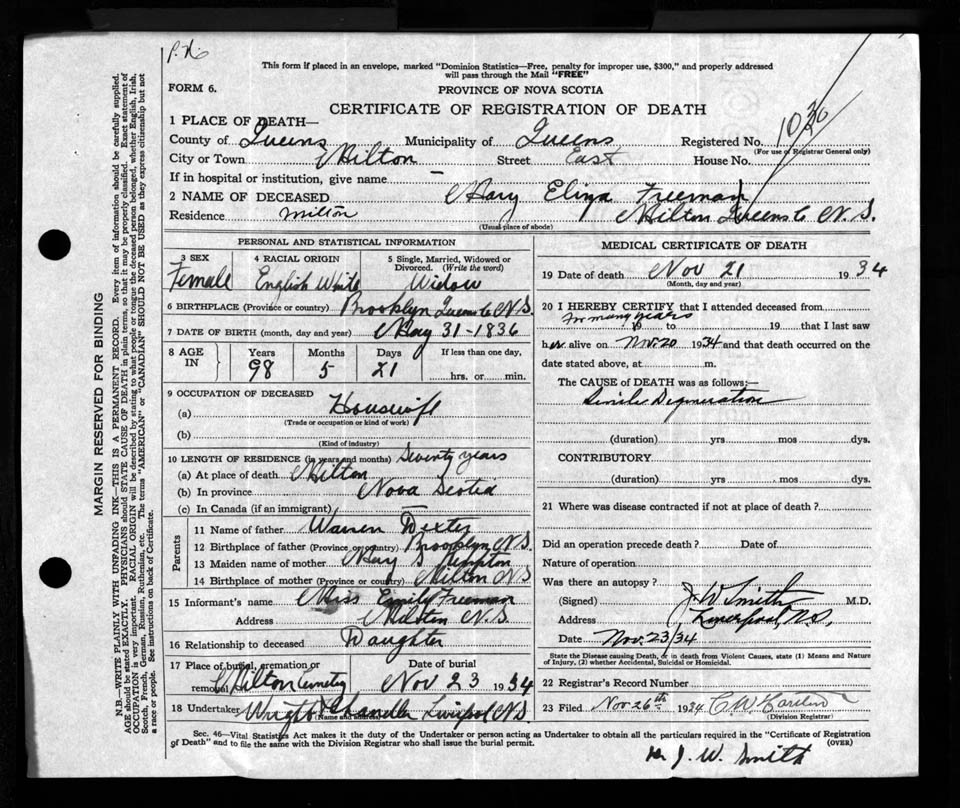 This form if placed in an envelope, marked "Dominion Statistics—Free, penalty for improper use, $300," and properly addressed
will pass through the Mail "FREE"
FORM 6.
PROVINCE OF NOVA SCOTIA
CERTIFICATE OF REGISTRATION OF DEATH
1 PLACE OF DEATH—
County of Queens Municipality of Queens Registered No. 1036
(For use of Registrar General only)
City or Town Milton Street East House No.
If in hospital or institution, give name —
2 NAME OF DECEASED Mary Eliza Freeman
Residence Milton Milton Queens Co N.S.
(Usual place of abode)
PERSONAL AND STATISTICAL INFORMATION
3 SEX 4 RACIAL ORIGIN 5 Single, Married, Widowed or
Divorced. (Write the word)
Female English White Widow
6 BIRTHPLACE (Province or country) Brooklyn Queens Co N.S.
7 DATE OF BIRTH (month, day and year) May 31-1836
8 AGE IN Years Months Days If less than one day,
98 5 21 hrs. or min.
9 OCCUPATION OF DECEASED
(a) Housewife
(Trade or occupation or kind of work)
(b)
(Kind of industry)
10 LENGTH OF RESIDENCE (in years and months) Seventy years
(a) At place of death Milton
(b) In province Nova Scotia
(c) In Canada (if an immigrant) —
Parents
11 Name of father Warren Dexter
12 Birthplace of father (Province or country) Brooklyn N.S.
13 Maiden name of mother May
14 Birthplace of mother (Province or country) Milton N.S
15 Informant's name Miss Emily Freeman
Address Milton N.S.
16 Relationship to deceased Daughter
17 Place of burial, cremation or removal Milton Cemetery
Date of burial Nov 23 1934
18 Undertaker Wright Chandler Liverpool N.S.
(Name and address)
MEDICAL CERTIFICATE OF DEATH
19 Date of death Nov 21 1934
(Month, day and year)
20 I HEREBY CERTIFY that I attended deceased from
For many years
19 to 19 that I last saw
her alive on Nov. 20 1934 and that death occurred on the
date stated above, at m.
The CAUSE of DEATH was as follows:—
Senile Degeneration
(duration) yrs mos dys.
CONTRIBUTORY.
(duration) yrs mos dys.
21 Where was disease contracted if not at place of death?
Did an operation precede death? Date of
Nature of operation
Was there an autopsy?
(Signed) J W Smith M.D.
Address Liverpool, N.S.
Date Nov. 23/34
State the Disease causing Death, or in death from Violent Causes, state (1) Means and Nature
of Injury, (2) whether Accidental, Suicidal or Homicidal.
22 Registrar's Record Number
23 Filed Nov 26th 1934 C.W.
(Division Registrar)
Sec. 46—Vital Statistics Act makes it the duty of the Undertaker or person acting as Undertaker to obtain all the particulars required in the "Certificate of Registration
of Death" and to file the same with the Division Registrar who shall issue the burial permit.
(OVER)
Dr J. W. Smith
MARGIN RESERVED FOR BINDING
N.B.—WRITE PLAINLY WITH UNFADING INK—THIS IS A PERMANENT RECORD. Every item of information should be carefully supplied.
AGE should be stated EXACTLY. PHYSICIANS should STATE CAUSE OF DEATH in plain terms, so that it may be properly classified. Exact statement of
OCCUPATION is very important. RACIAL ORIGIN will be described by stating to what people or tongue the deceased person belonged, whether English, Irish,
Scotch, French, German, Russian, Ruthenian, etc. The terms "AMERICAN" or "CANADIAN" SHOULD NOT BE USED as they express citizenship but not
a race or people. See instructions on back of Certificate.